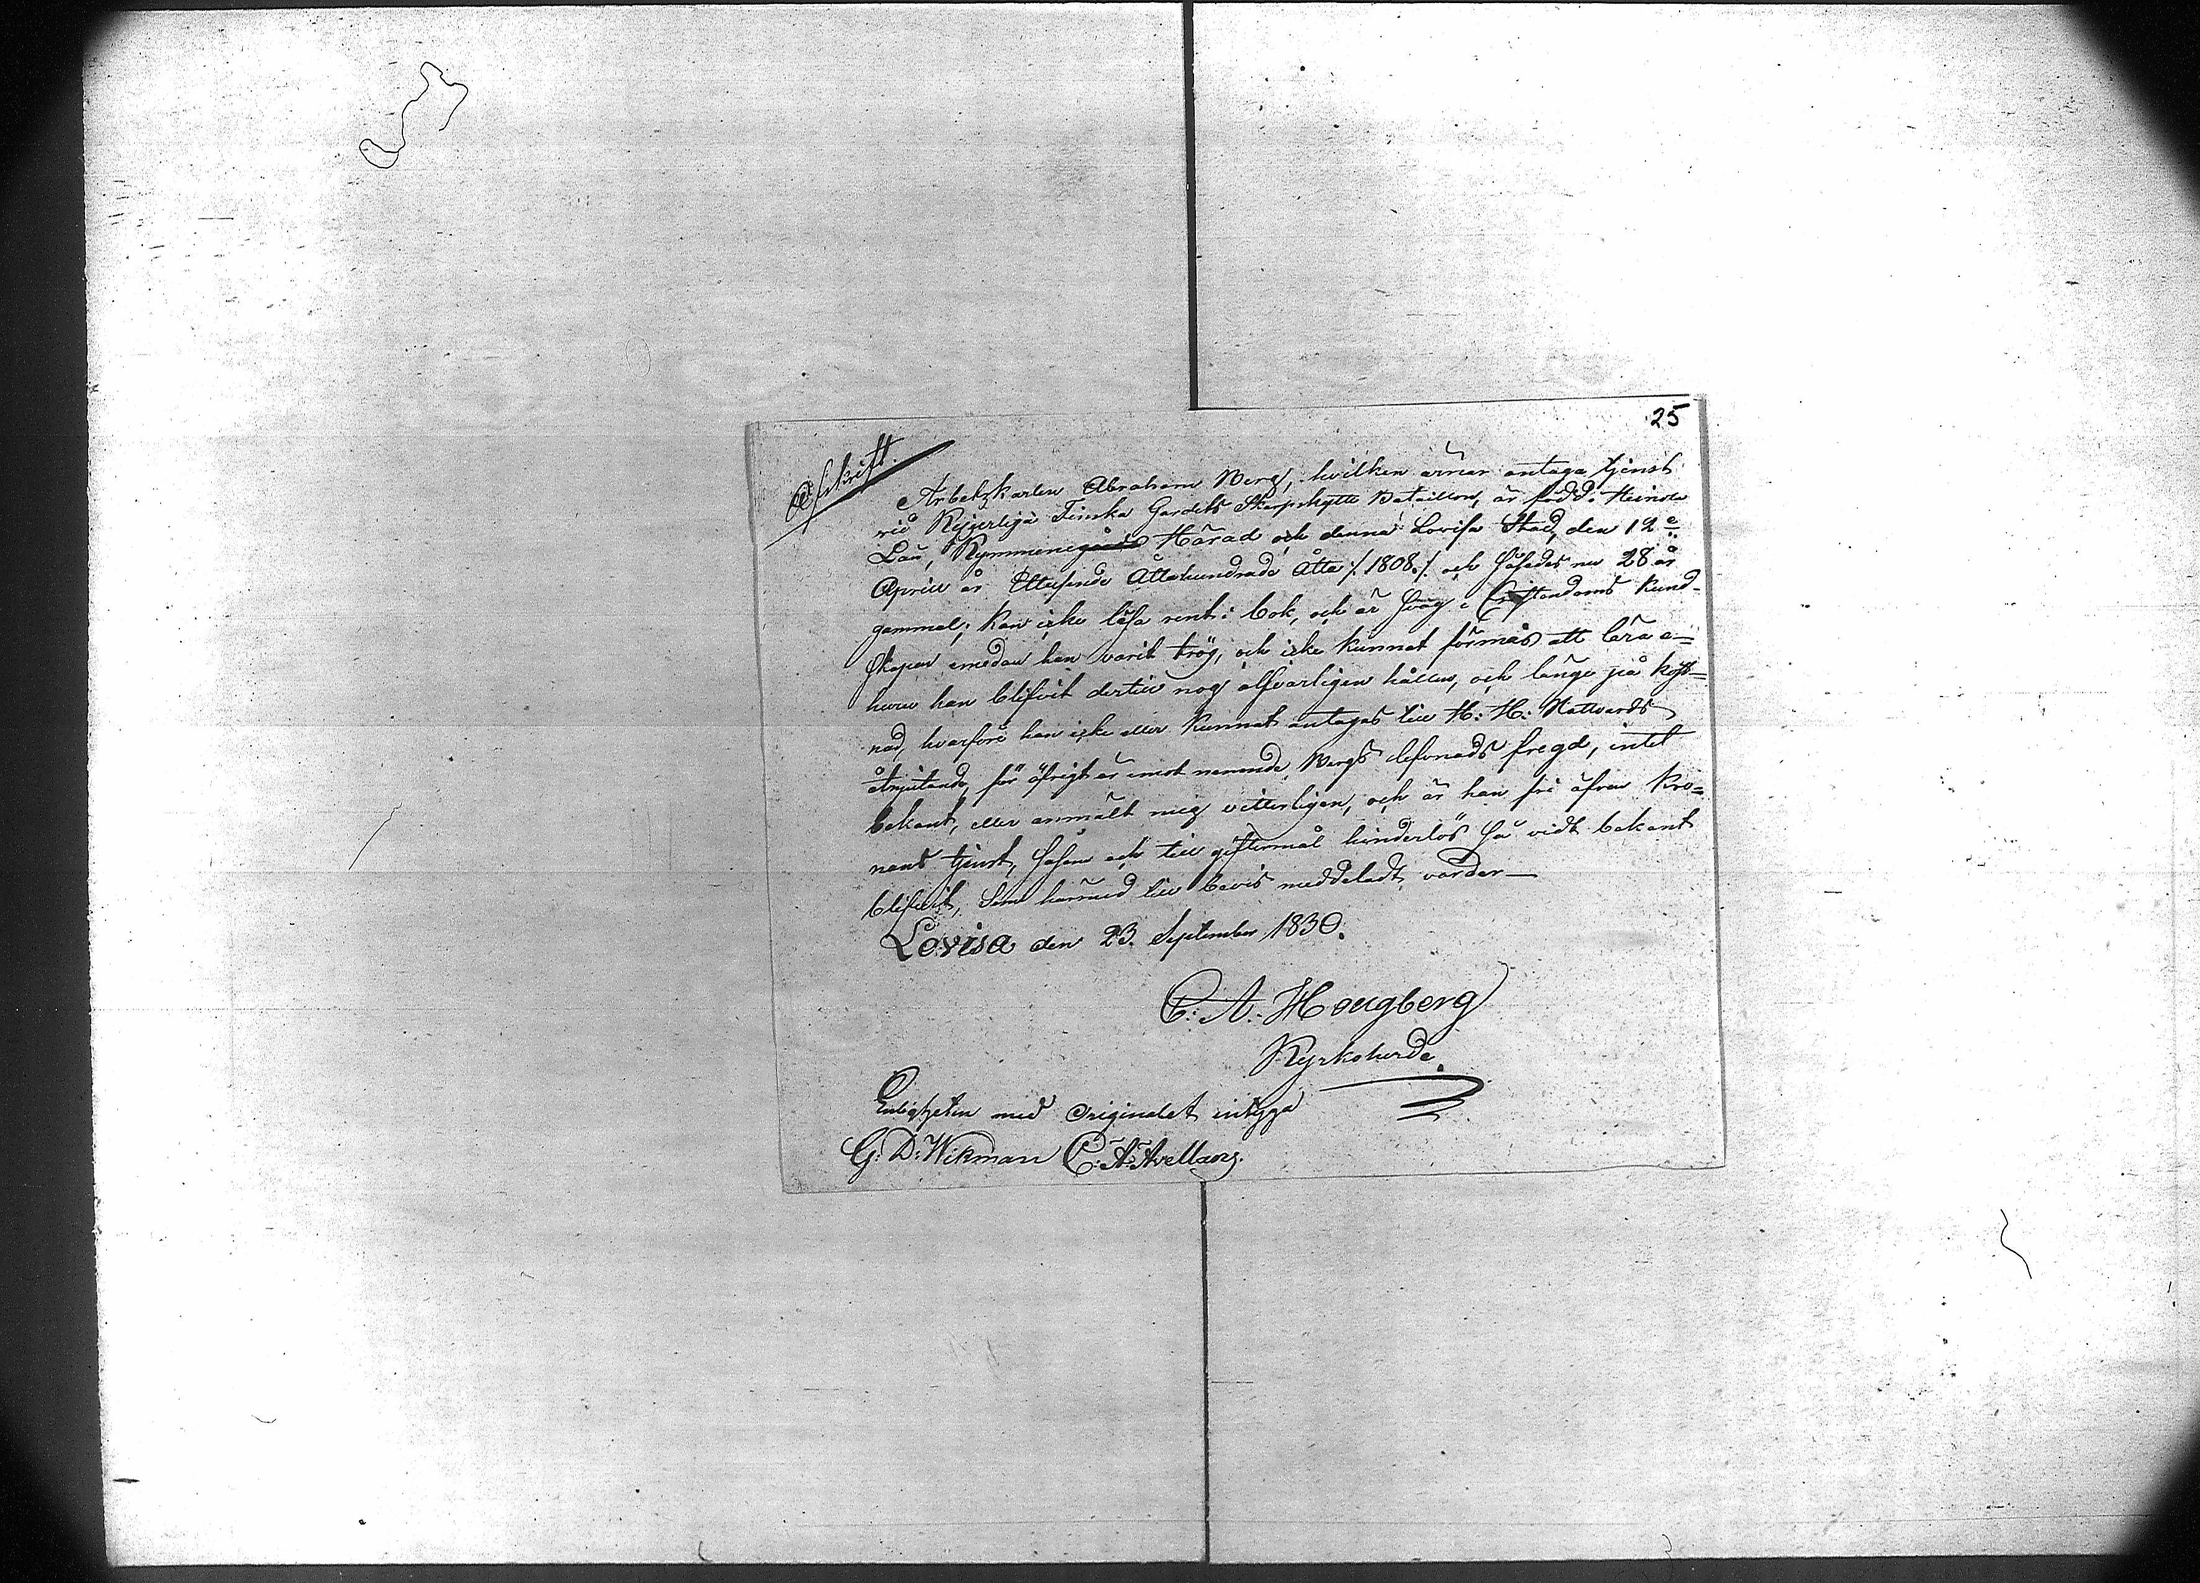 25
Afskrift.
Arbetzkarlen Abraham Berg, hvilken ärnar antaga tjenst
vid Kejserliga Finska Gardets Skarpskytte Bataillon, är född i Heinola
Län, Kymmene Härad och denna Lovisa Stad, den 12e
April år Ettusende Åttahundrade Åtta /: 1808. :/ och således nu 28 år
gammal; kan icke läsa rent i bok, och är svag i Christendoms kund-
skapen emedan han varit trög, och icke kunnat förmås att lära e=
huru han blifvit dertill nog alfvarligen hållen, och länge på kost=
nad, hvarföre han icke eller kunnat antagas till H: H: Nattvards
åtnjutande, för öfrigt är emot nemnde Bergs lefvnads fregd, intet
bekant, eller anmält mig vitterligen, och är han fri ifrån Kro=
nans tjenst, såsom och till giftermål hinderlös så vidt bekant
blifvit, som härmed till bevis meddeladt varder —
Lovisa den 23. September 1830.
C: A. Hougberg
Kyrkoherde.
Enligheten med Originalet intyga
G: D: Wikman C: A: Avellan